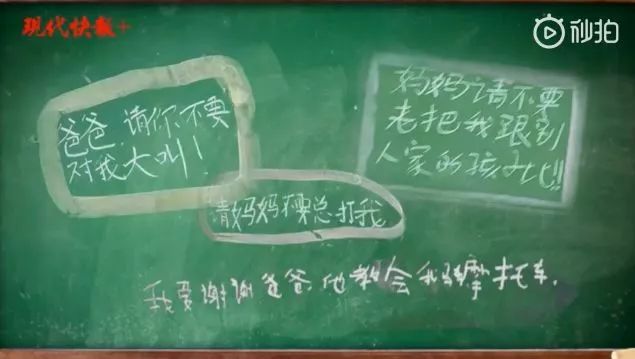 现代快报+
秒拍
爸爸,请你不要
对我大叫!
妈妈请不要
老把我跟别
人家的孩子比!!
请妈妈不要总打我
我要谢谢爸爸,他教会我骑摩托车.